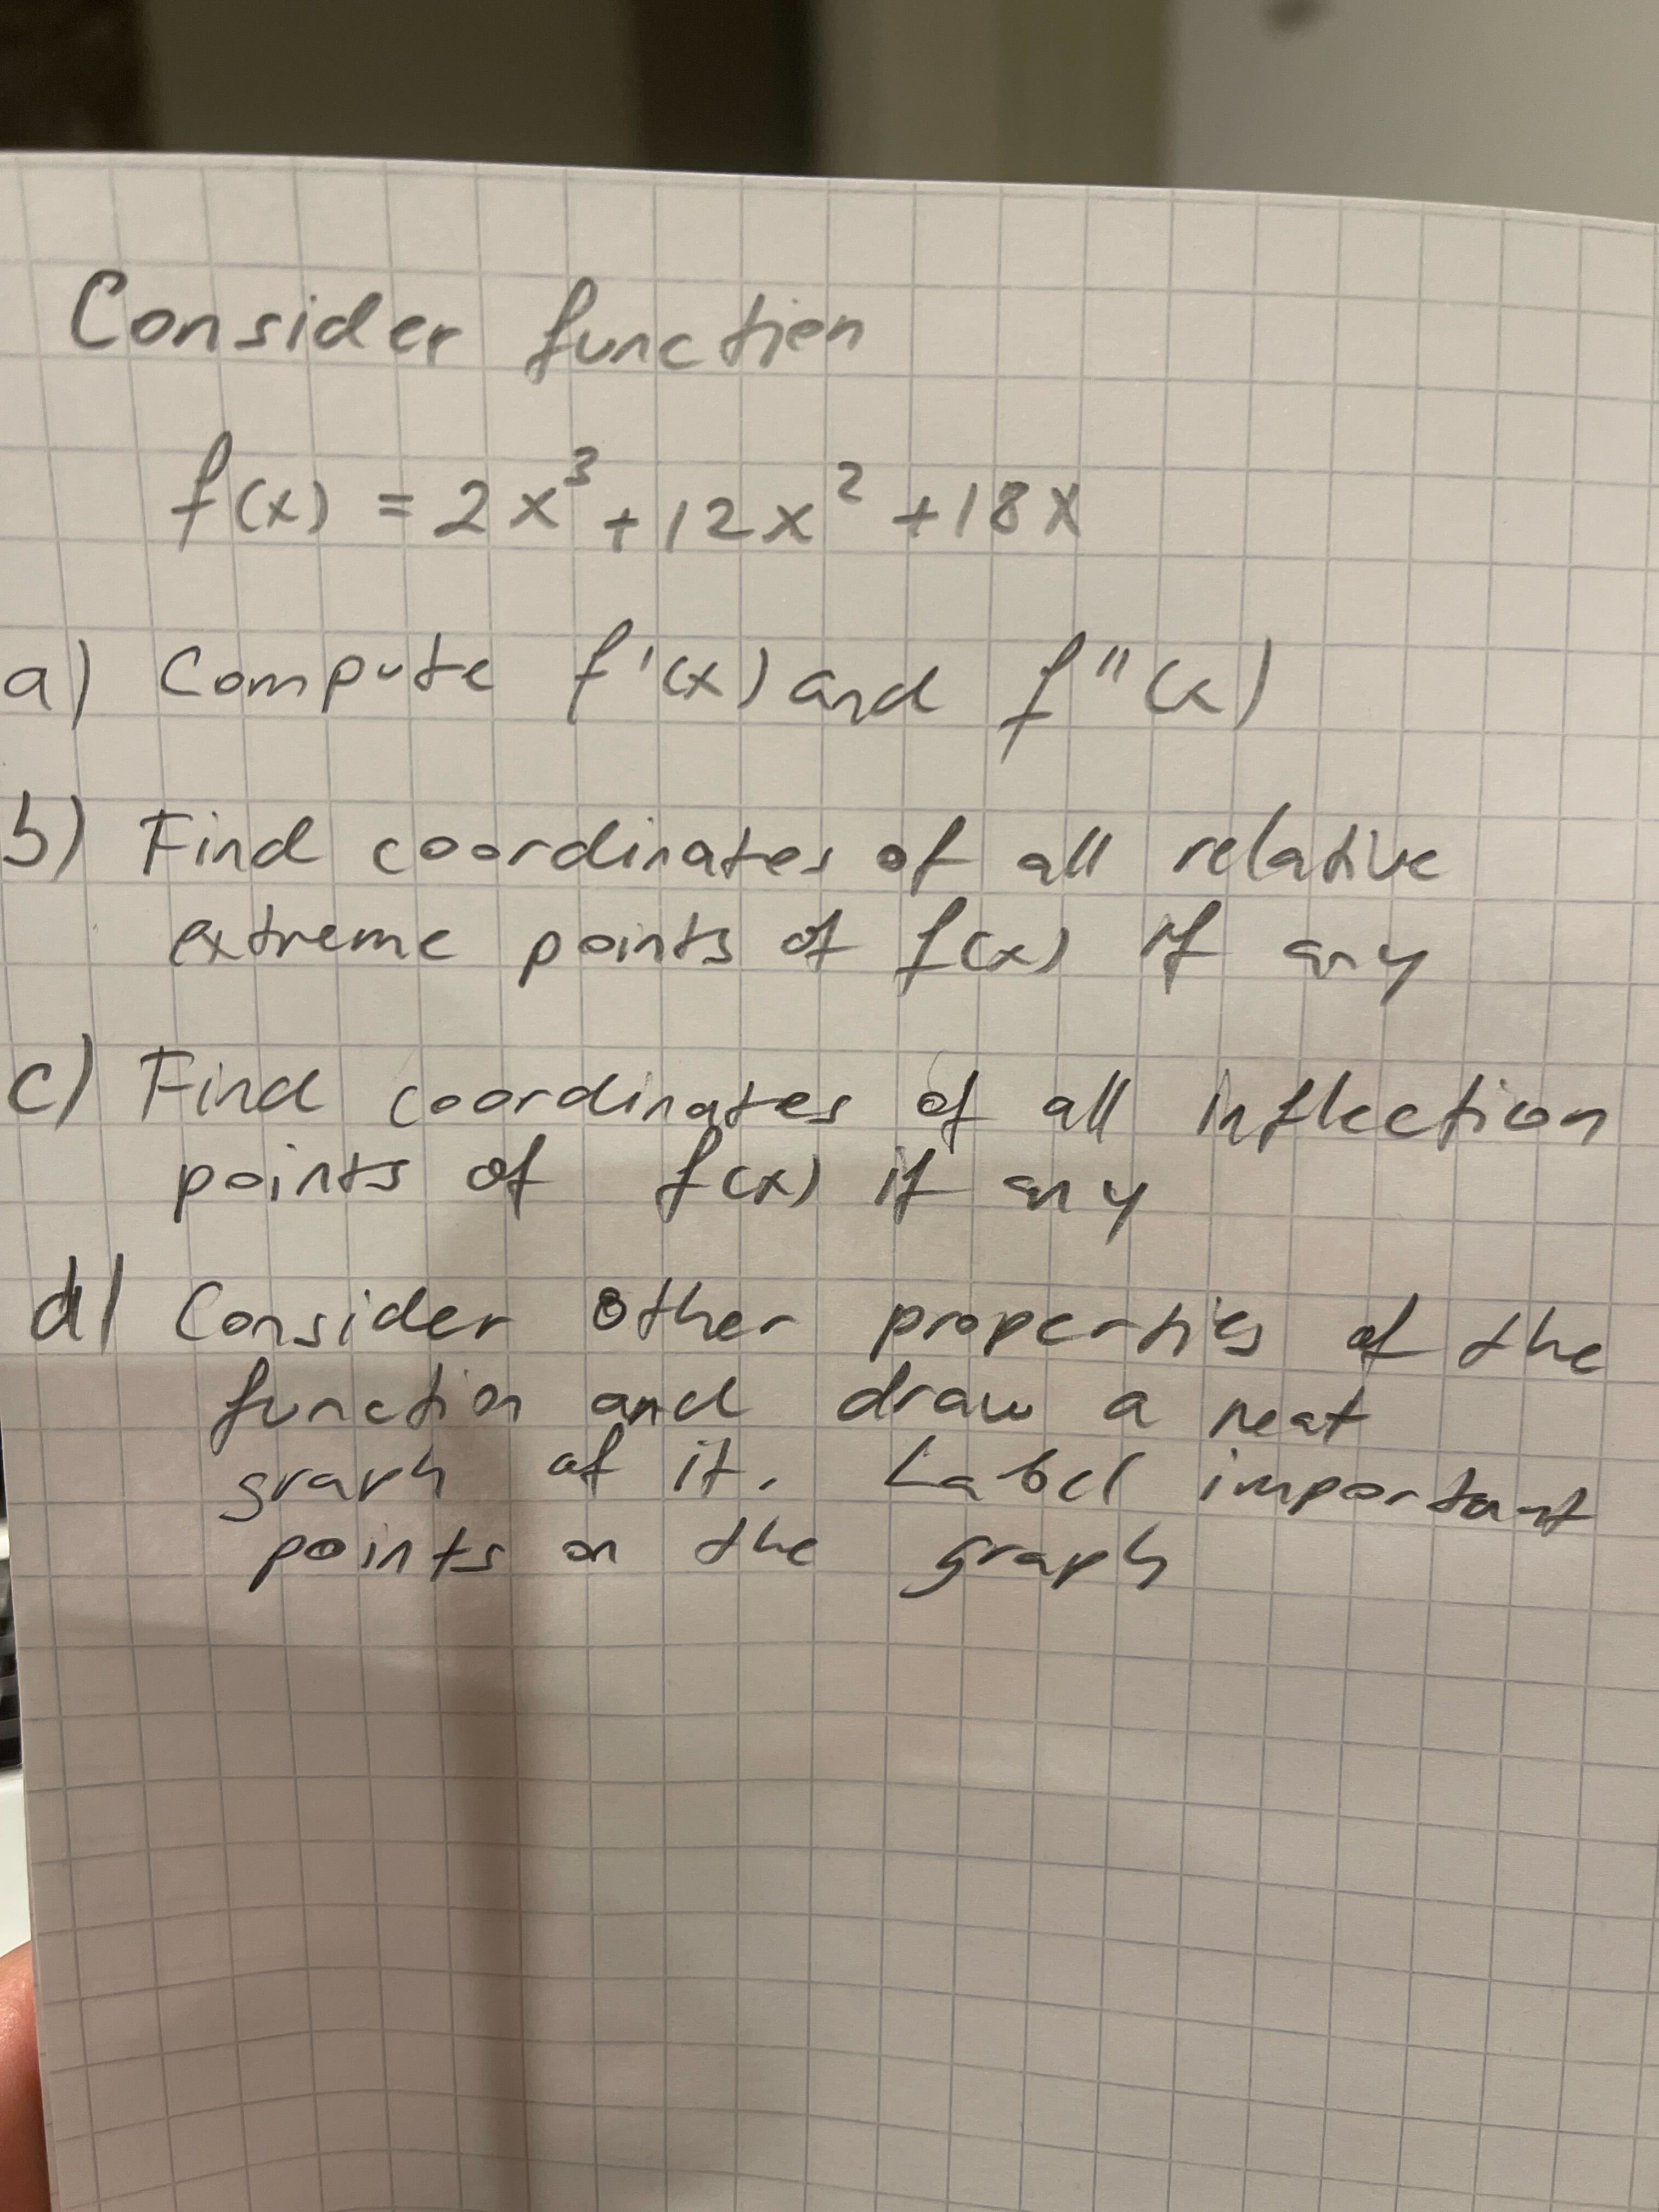 Consider function
f(x) = 2x³ + 12x² + 18x
a) Compute f'(x) and f''(x)
b) Find coordinates of all relative
extreme points of f(x) if any
c) Find coordinates of all inflection
points of f(x) if any
d) Consider other properties of the
function and draw a neat
graph of it. Label important
points on the graph